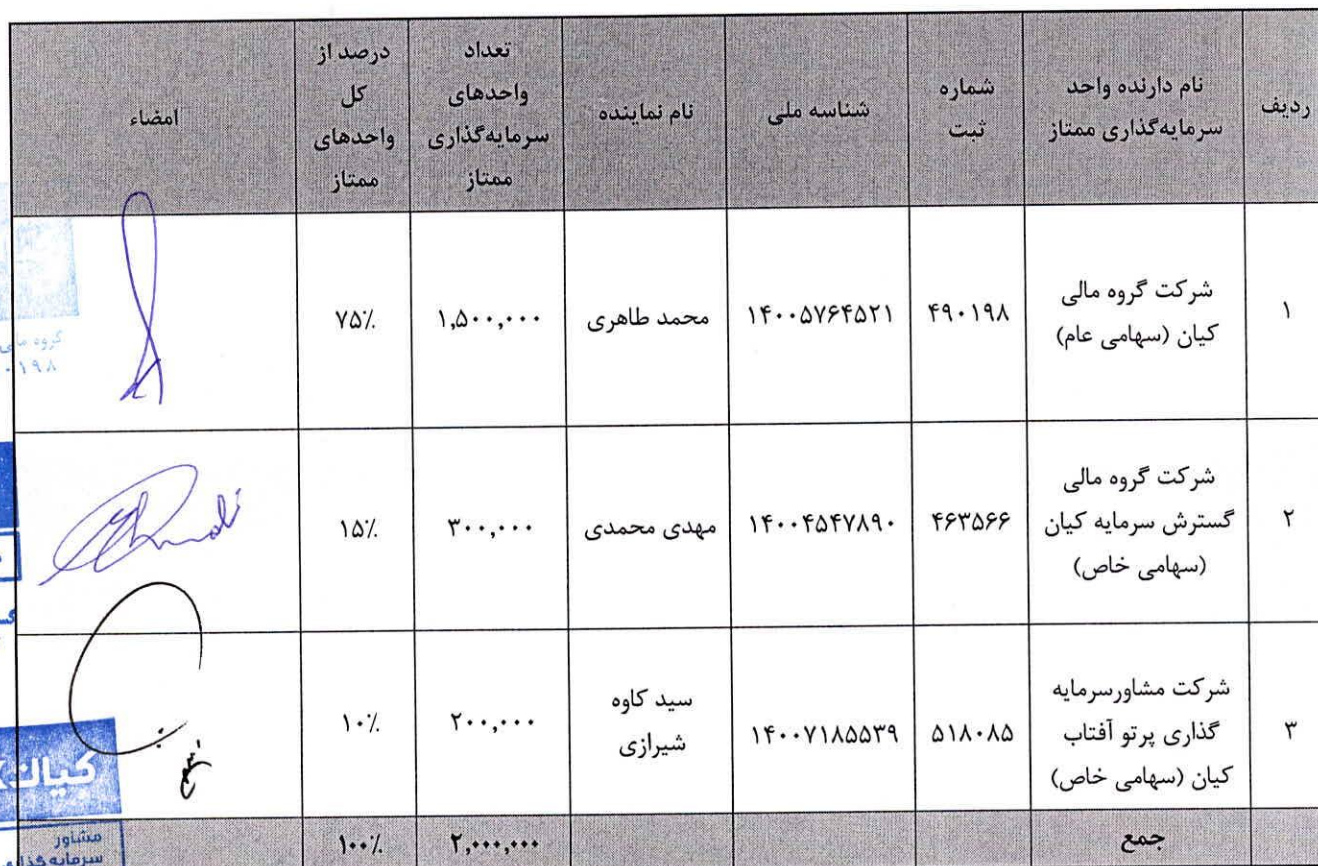 ردیف
نام دارنده واحد
سرمایه‌گذاری ممتاز
شماره
ثبت
شناسه ملی
نام نماینده
تعداد
واحدهای
سرمایه‌گذاری
ممتاز
درصد از
کل
واحدهای
ممتاز
امضاء
۱
شرکت گروه مالی
کیان (سهامی عام)
۴۹۰۱۹۸
۱۴۰۰۵۷۶۴۵۲۱
محمد طاهری
۱,۵۰۰,۰۰۰
۷۵٪
۲
شرکت گروه مالی
گسترش سرمایه کیان
(سهامی خاص)
۴۶۳۵۶۶
۱۴۰۰۴۵۴۷۸۹۰
مهدی محمدی
۳۰۰,۰۰۰
۱۵٪
۳
شرکت مشاورسرمایه
گذاری پرتو آفتاب
کیان (سهامی خاص)
۵۱۸۰۸۵
۱۴۰۰۷۱۸۵۵۳۹
سید کاوه
شیرازی
۲۰۰,۰۰۰
۱۰٪
جمع
۲,۰۰۰,۰۰۰
۱۰۰٪
گروه
۰۱۹۸
کیان
مشاور
سرمایه گذاری